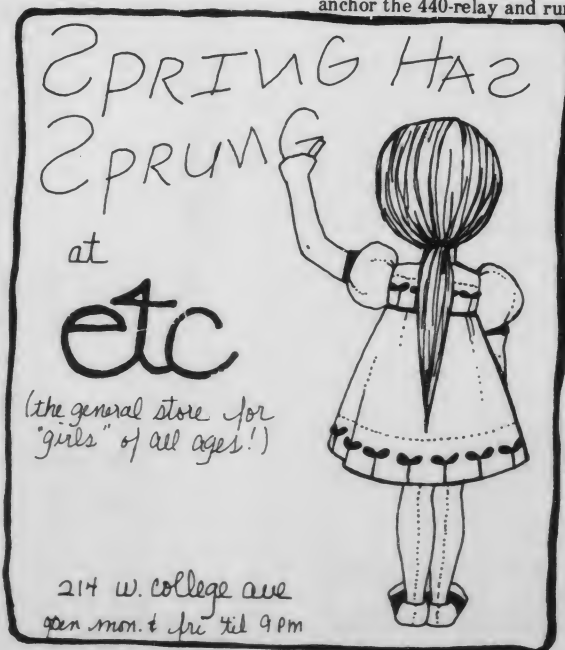 anchor the 440-relay and run
SPRING HAS
SPRUNG
at
etc
(the general store for
"girls" of all ages!)
214 w. college ave
open mon. & fri til 9 pm